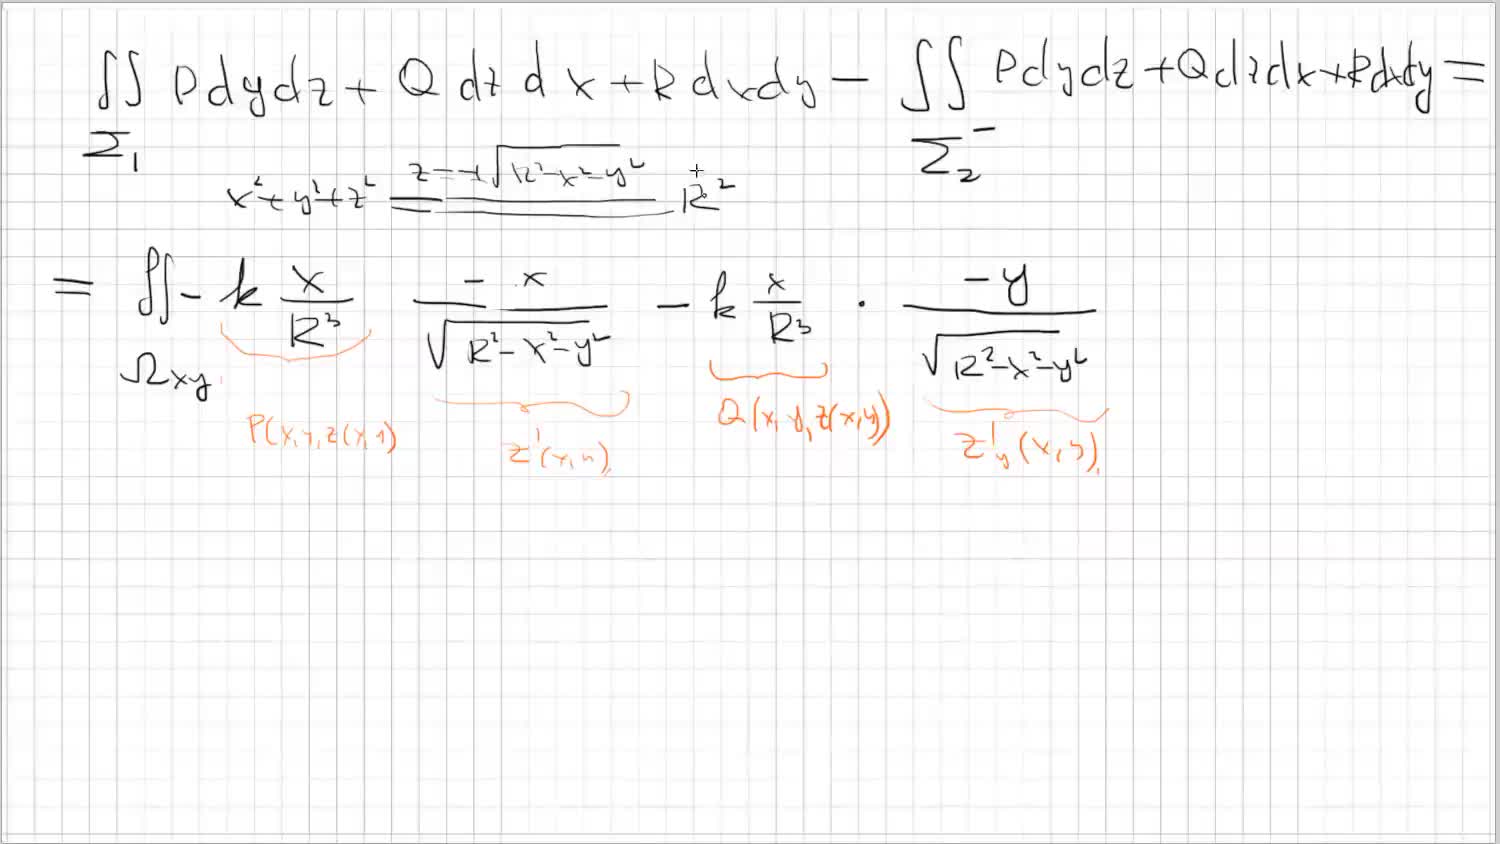 ∬ P dy dz + Q dz dx + R dx dy − ∬ P dy dz + Q dz dx + R dx dy =
Σ₁ Σ₂⁻
z = +√(R² − x² − y²)
x² + y² + z² = R²
= ∬ − k x/R³ −x/√(R² − x² − y²) − k x/R³ · −y/√(R² − x² − y²)
Ωxy
P(x, y, z(x, y) Q(x, y, z(x, y)) z'y(x, y)
z'(x, y)